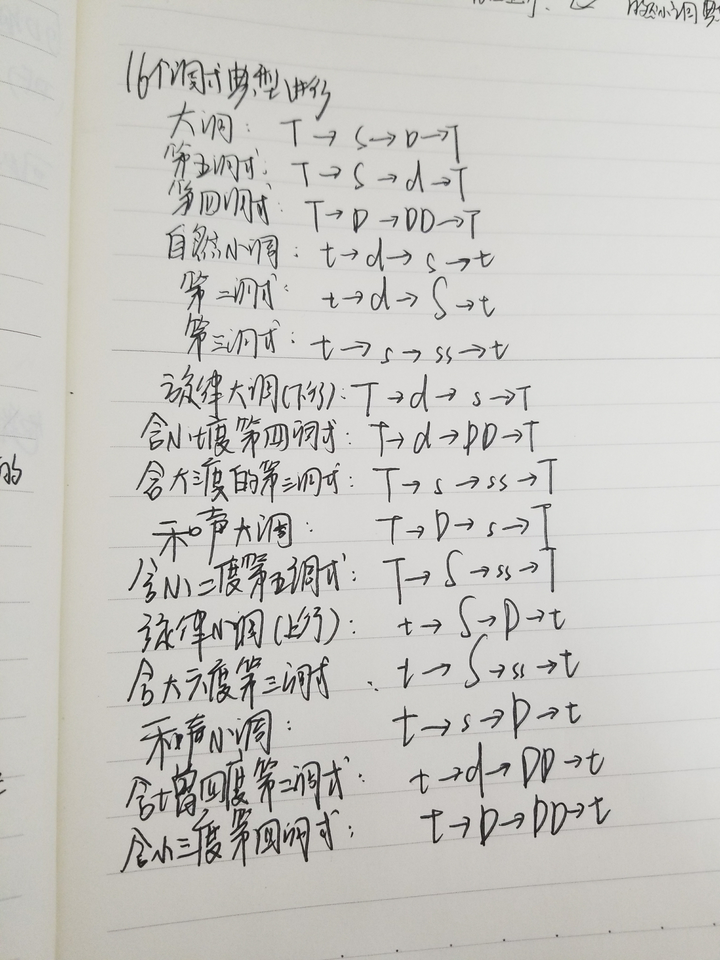 的小调典
16个调式典型进行
大调: T→S→D→T
第五调式: T→S→d→T
第四调式: T→D→DD→T
自然小调: t→d→s→t
第二调式: t→d→S→t
第三调式: t→s→ss→t
旋律大调(下行): T→d→s→T
含小七度第四调式: T→d→DD→T
含大三度的第三调式: T→s→ss→T
的
和声大调: T→D→s→T
含小二度第五调式: T→S→ss→T
旋律小调(上行): t→S→D→t
含大六度第三调式: t→S→ss→t
和声小调: t→s→D→t
含增四度第二调式: t→d→DD→t
含小三度第四调式: t→D→DD→t